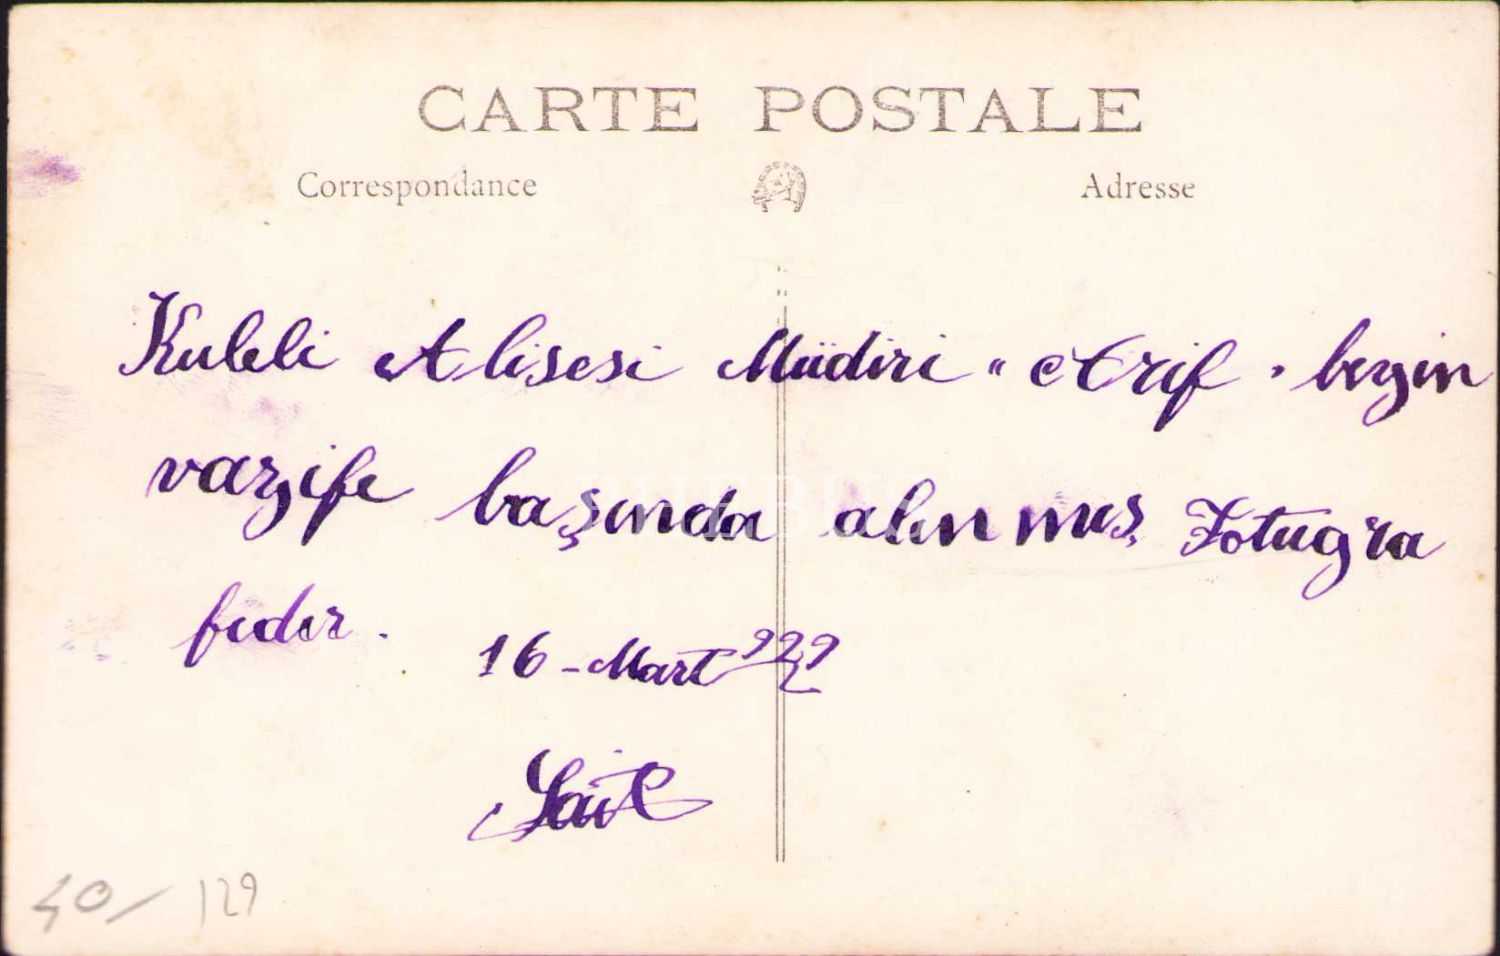 CARTE POSTALE
Correspondance Adresse
Kuleli A lisesi Müdiri "Arif" beyin
vazife başında alınmış Fotuğra
fıdır.
16 - Mart 929
Sait
40/ 129
PHEBUS